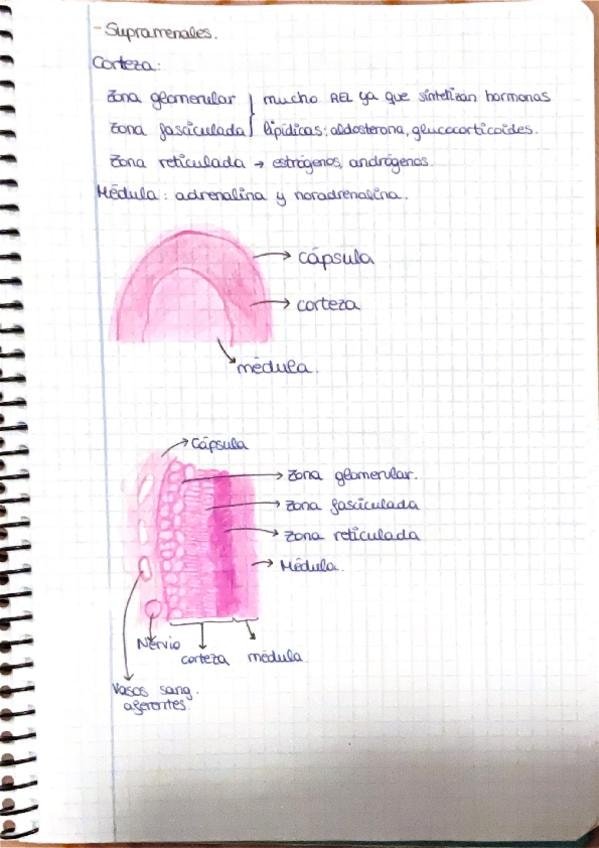 - Suprarrenales.
Corteza:
Zona glomerular } mucho REL ya que sintetizan hormonas
Zona fasciculada } lipídicas: aldosterona, glucocorticoides.
Zona reticulada → estrógenos, andrógenos.
Médula: adrenalina y noradrenalina.
cápsula
corteza
médula.
Cápsula
Zona glomerular.
Zona fasciculada
Zona reticulada
Médula.
Nervio
corteza médula
Vasos sang.
aferentes.